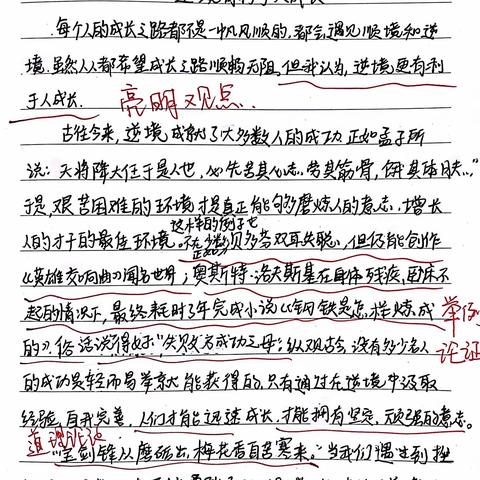 每个人的成长之路都不是一帆风顺的,都会遇见顺境和逆
境.虽然人人都希望成长之路顺畅无阻,但我认为,逆境更有利
于人成长.
亮明观点.
古往今来,逆境成就了大多数人的成功.正如孟子所
说:天将降大任于是人也,必先苦其心志,劳其筋骨,饿其体肤..."
于是,艰苦困难的环境才是真正能够磨炼人的意志,增长
这样的例子也
人的才干的最佳环境.
贝多芬双耳失聪,但仍能创作
《英雄交响曲》闻名世界;奥斯特·洛夫斯基在身体残疾,卧床不
起的情况下,最终耗时3年完成小说《钢铁是怎样炼成
举例
的》.俗话说得好:"失败乃成功之母;纵观古今,没有多少名人
论证
的成功是轻而易举就能获得的.只有通过在逆境中汲取
经验,自我完善,人们才能迅速成长,才能拥有坚定,顽强的意志。
道理论述
"宝剑锋从磨砺出,梅花香自苦寒来."当我们遇到挫